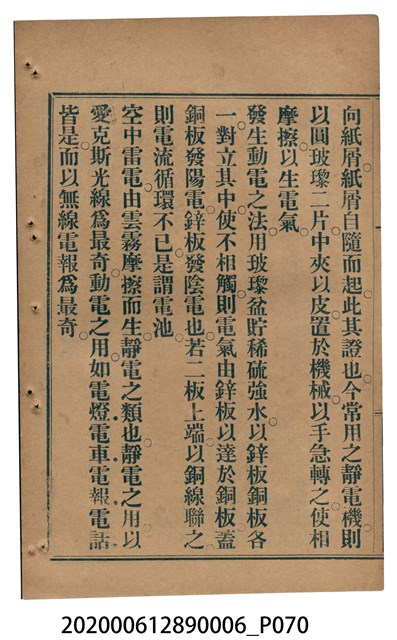 向紙屑紙屑自隨而起此其證也今常用之靜電機則
以圓玻瓈二片中夾以皮置於機械以手急轉之使相
摩擦以生電氣
發生動電之法用玻瓈盆貯稀硫強水以鋅板銅板各
一對立其中使不相觸則電氣由鋅板以達於銅板蓋
銅板發陽電鋅板發陰電也若二板上端以銅線聯之
則電流循環不已是謂電池
空中雷電由雲霧摩擦而生靜電之類也靜電之用以
愛克斯光線爲最奇動電之用如電燈電車電報電話
皆是而以無線電報爲最奇
202000612890006_P070